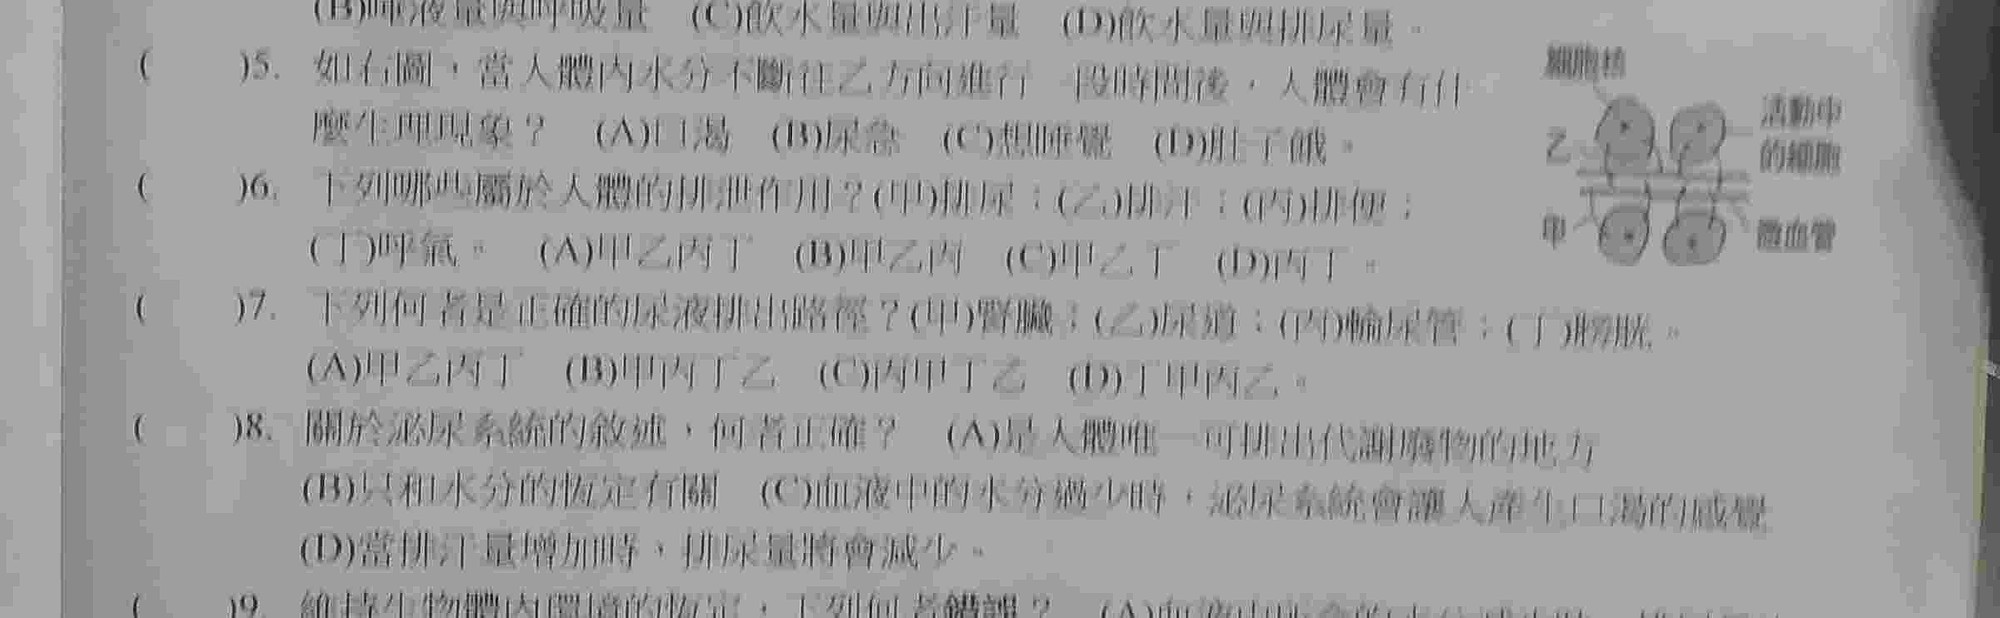 (B)呼吸量 (C)飲水量與出汗量 (D)飲水量與排尿量。
( )5. 如右圖，當人體內水分不斷往乙方向進行一段時間後，人體會有什
麼生理現象？ (A)口渴 (B)尿急 (C)想睡覺 (D)肚子餓。
細胞核
活動中
的細胞
乙
甲
微血管
( )6. 下列哪些屬於人體的排泄作用？(甲)排尿；(乙)排汗；(丙)排便；
(丁)呼氣。 (A)甲乙丙丁 (B)甲乙丙 (C)甲乙丁 (D)丙丁。
( )7. 下列何者是正確的尿液排出路徑？(甲)腎臟；(乙)尿道；(丙)輸尿管；(丁)膀胱。
(A)甲乙丙丁 (B)甲丙丁乙 (C)丙甲丁乙 (D)丁甲丙乙。
( )8. 關於泌尿系統的敘述，何者正確？ (A)是人體唯一可排出代謝廢物的地方
(B)只和水分的恆定有關 (C)血液中的水分過少時，泌尿系統會讓人產生口渴的感覺
(D)當排汗量增加時，排尿量將會減少。
( )9. 維持生物體內環境的恆定，下列何者錯誤？